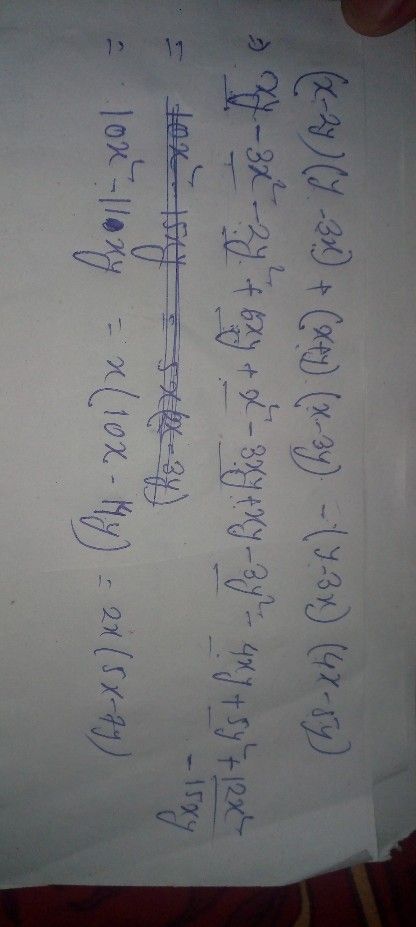 (x-2y) (y-3x) + (x+y) (x-3y) - (y-3x) (4x-5y)
⇒ xy - 3x² - 2y² + 6xy + x² - 3xy + xy - 3y² - 4xy + 5y² + 12x² - 15xy
= 10x² - 15xy = 5x(2x-3y)
= 10x² - 110xy = x(10x - 14y) = 2x(5x-7y)